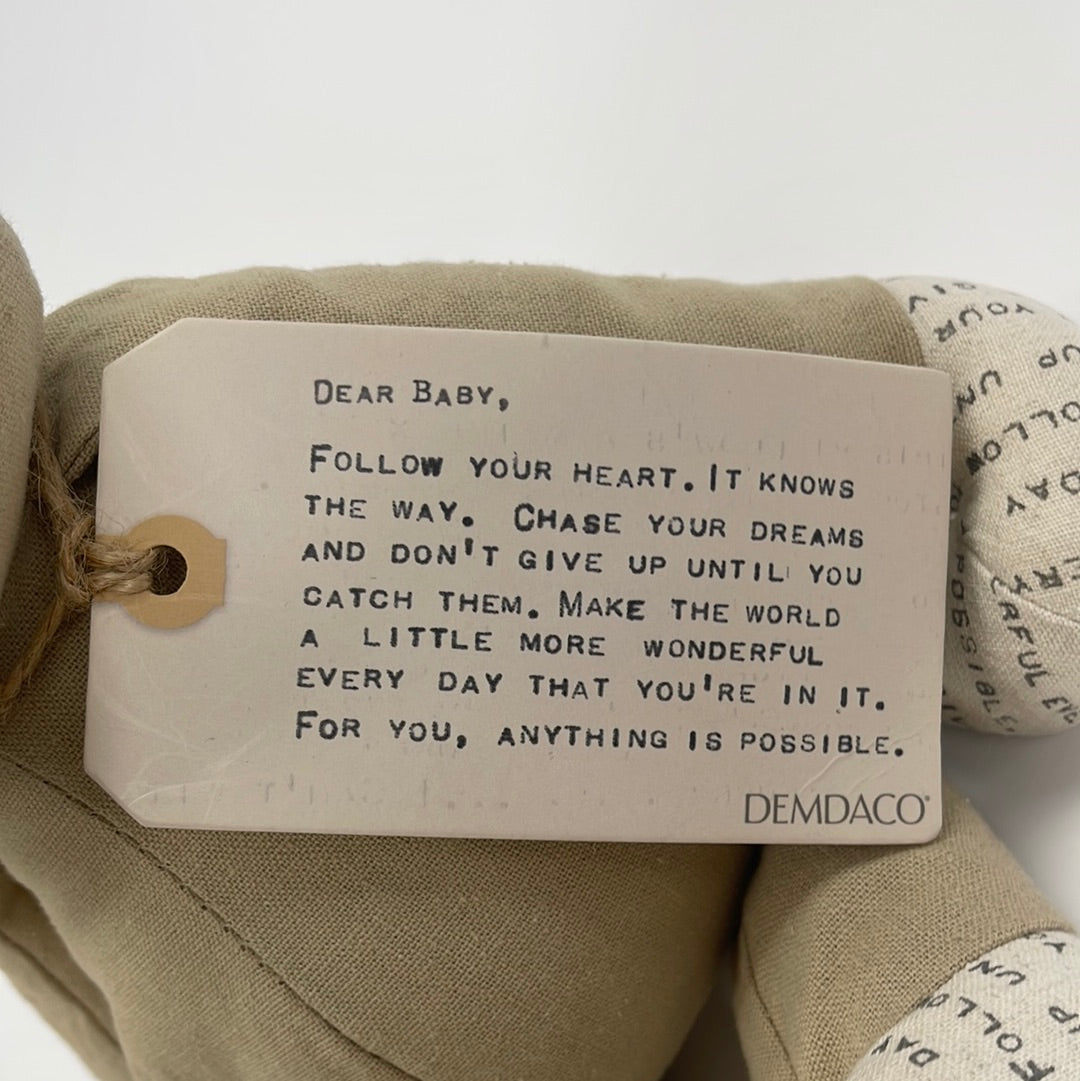 DEAR BABY,
FOLLOW YOUR HEART. IT KNOWS
THE WAY. CHASE YOUR DREAMS
AND DON'T GIVE UP UNTIL YOU
CATCH THEM. MAKE THE WORLD
A LITTLE MORE WONDERFUL
EVERY DAY THAT YOU'RE IN IT.
FOR YOU, ANYTHING IS POSSIBLE.
DEMDACO®
YOUR
UP UN
FOLLOW
DAY
POSSIBLE
UP UN
FOLLO
DAY